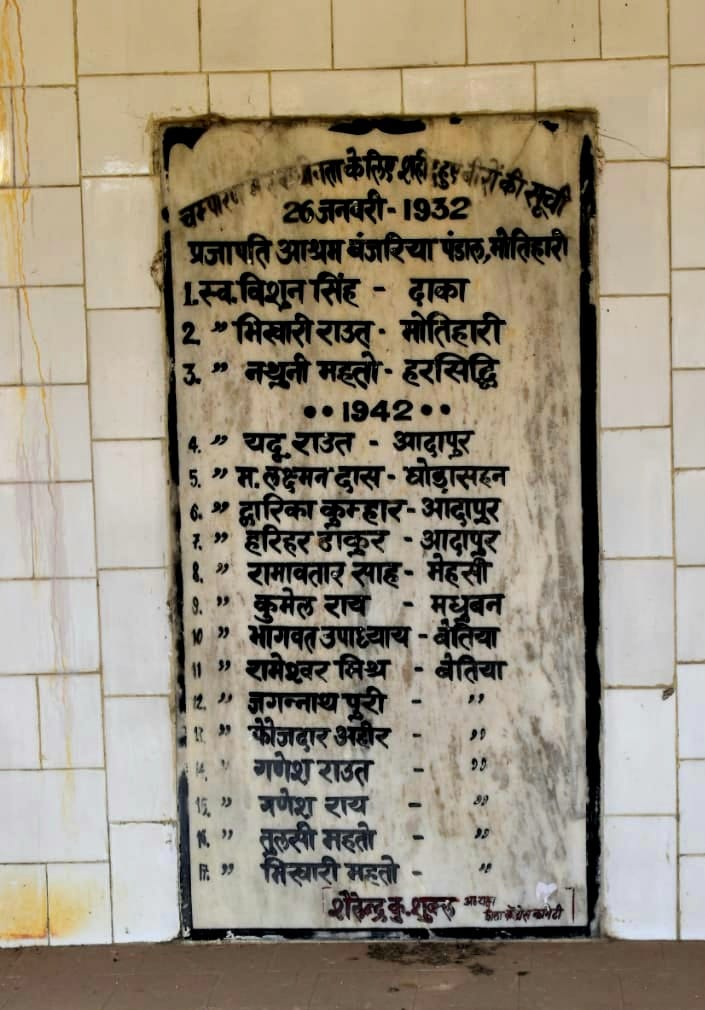 चम्पारण में स्वतंत्रता के लिए शहीद हुए वीरों की सूची
26 जनवरी - 1932
प्रजापति आश्रम बंजरिया पंडाल, मोतिहारी
1. स्व. विशुन सिंह - ढाका
2 " भिखारी राउत - मोतिहारी
3. " नथुनी महतो - हरसिद्धि
•• 1942 ••
4. " यदू राउत - आदापुर
5. " म. लक्ष्मन दास - घोड़ासहन
6. " द्वारिका कुम्हार - आदापुर
7. " हरिहर ठाकुर - आदापुर
8. " रामावतार साह - मेहसी
9. " कुमेल राय - मधुबन
10 " भागवत उपाध्याय - बेतिया
11 " रामेश्वर मिश्र - बेतिया
12. " जगन्नाथ पुरी - "
13. " फौजदार अहीर - "
14. " गणेश राउत - "
15. " गणेश राय - "
16. " तुलसी महतो - "
17. " भिखारी महतो - "
शैलेन्द्र कु. शुक्ल अध्यक्ष
जिला काँग्रेस कमिटी